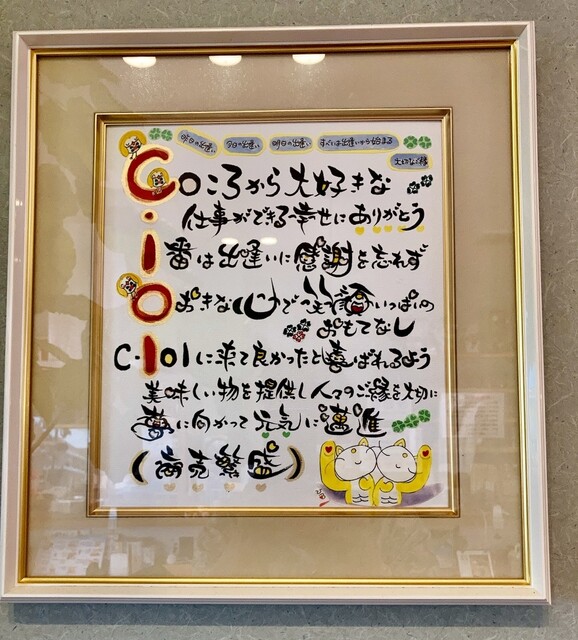 昨日の出逢い 今日の出逢い 明日の出逢い すべては出逢いから始まる
大切なご縁
Coころから大好きな
仕事ができる幸せにありがとう
1番は出逢いに感謝を忘れず
0おきな心で笑顔いっぱいの
おもてなし
C・101に来て良かったと喜ばれるよう
美味しい物を提供し人々のご縁を大切に
夢に向かって元気に邁進
(商売繁盛)